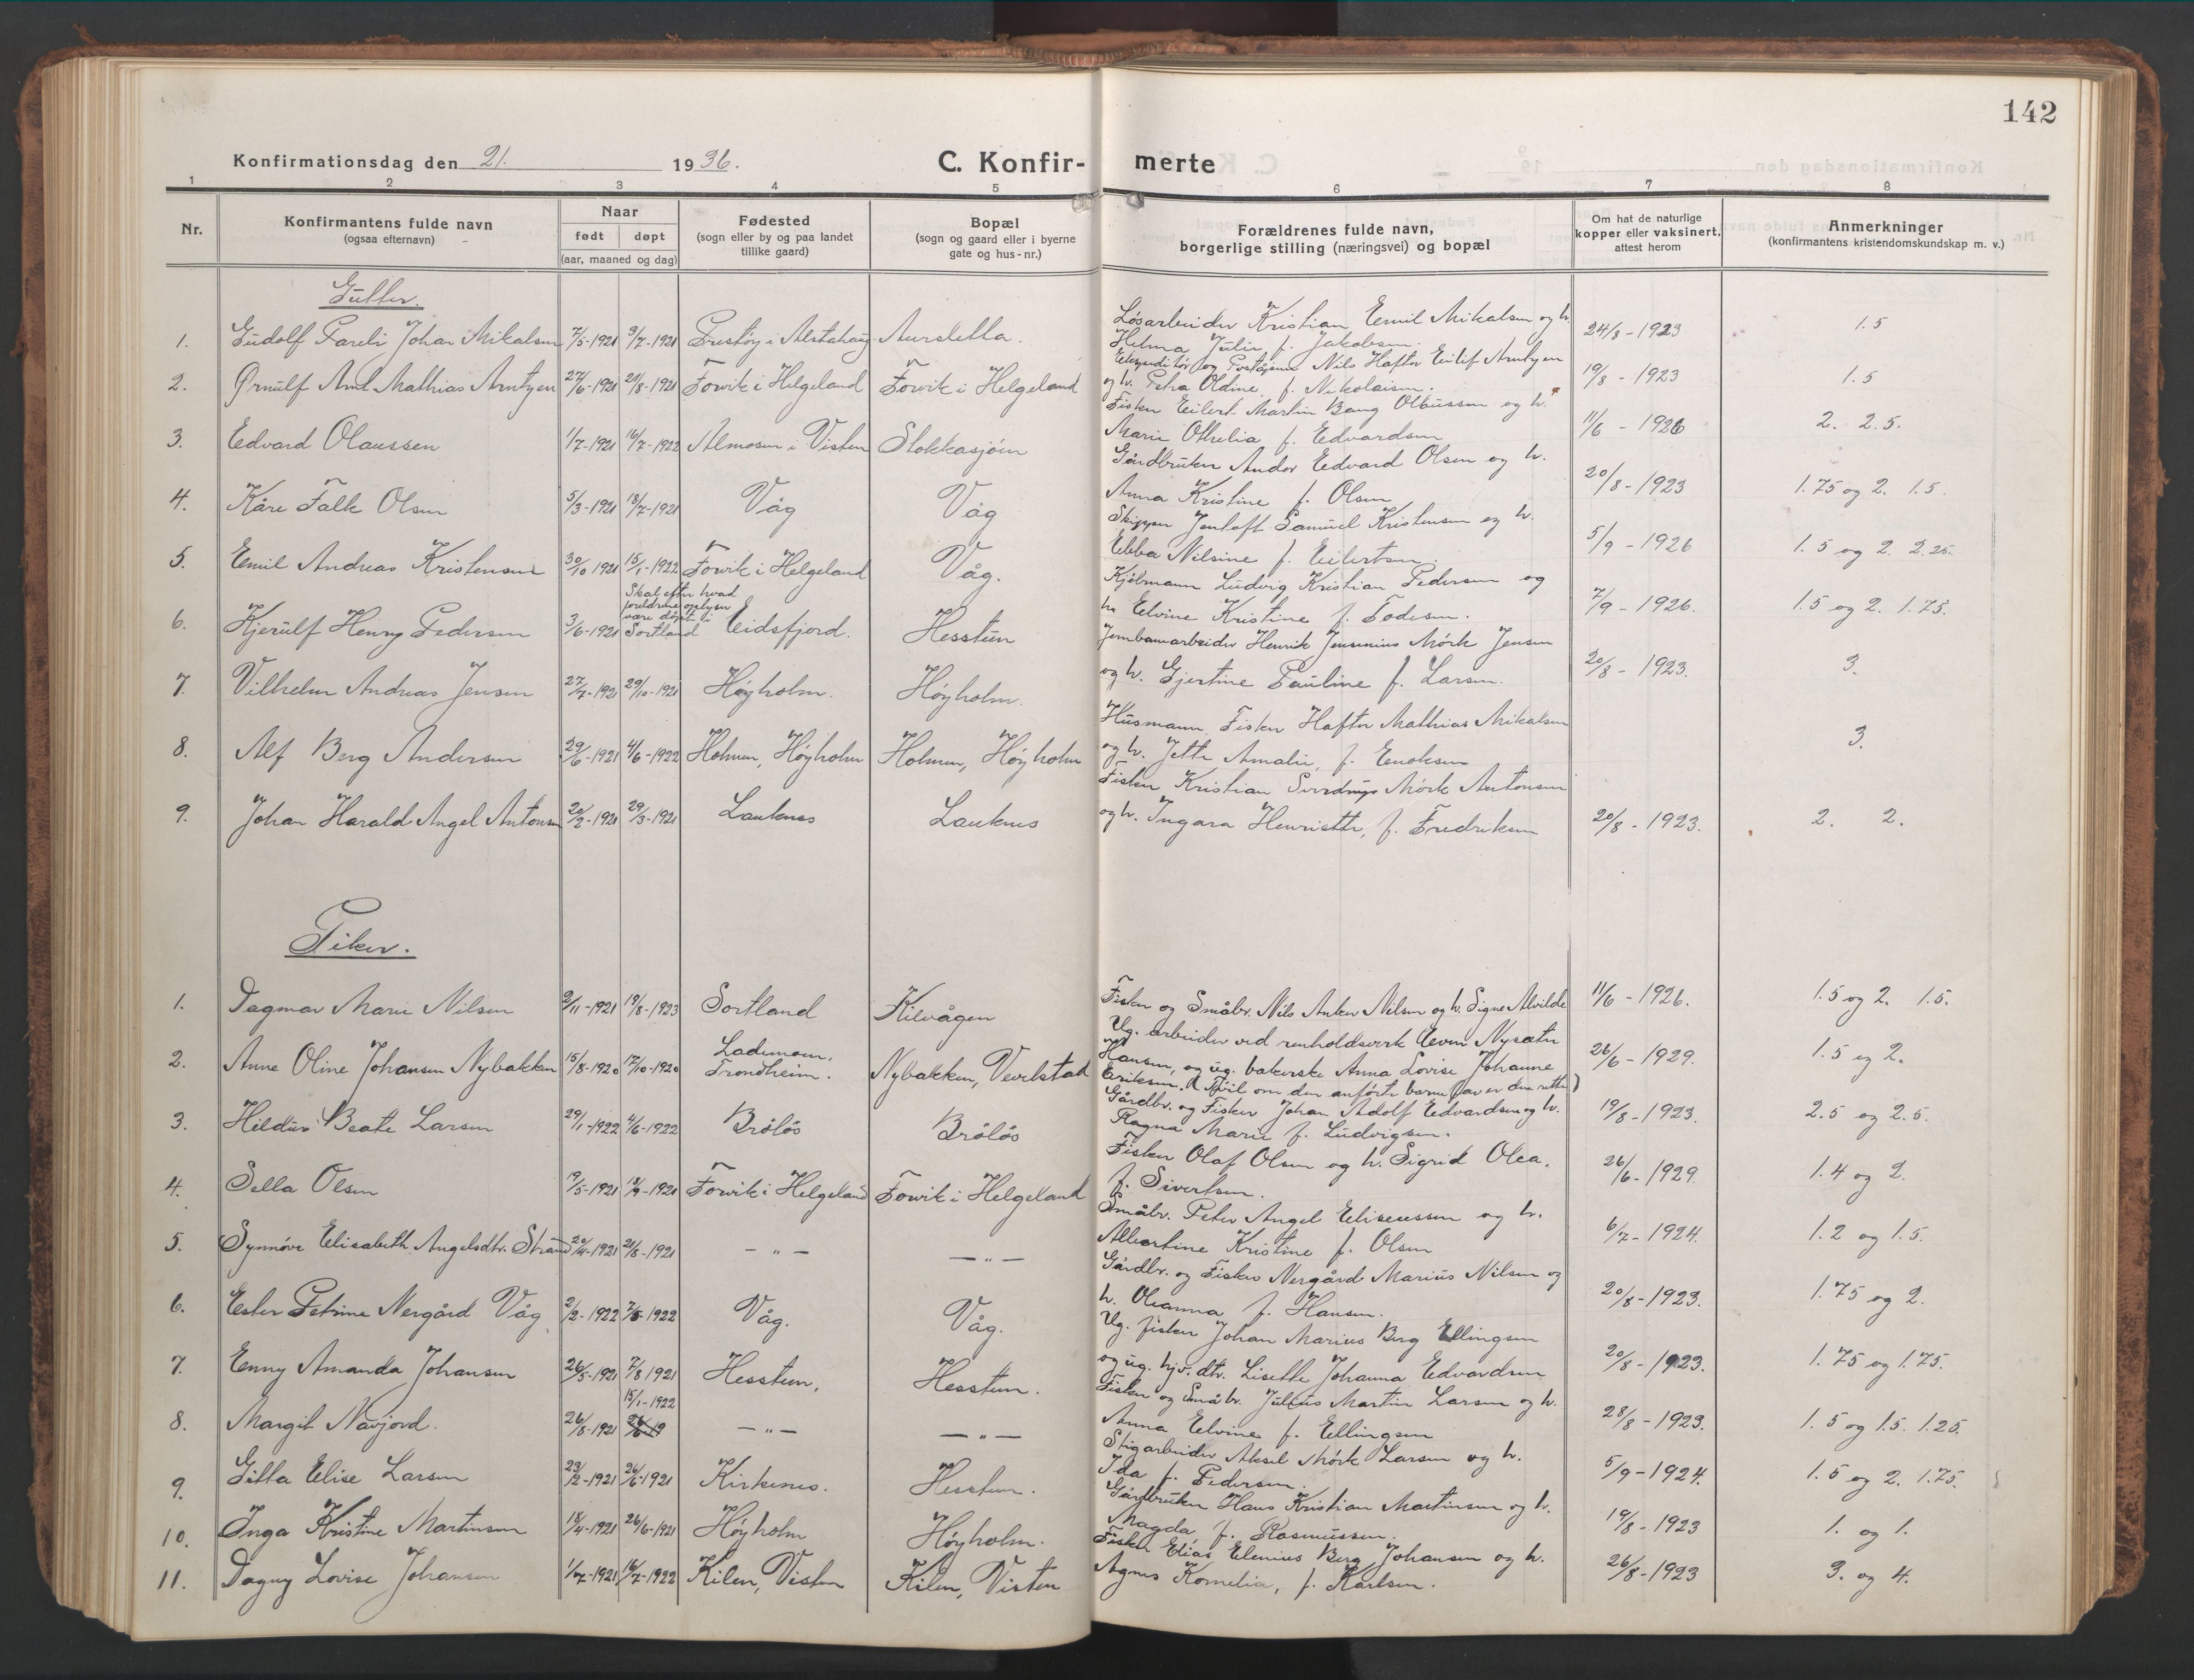 142
Konfirmationsdag den 21. 1936. C. Konfir- merte
1 2 3 4 5 6 7 8
Nr. Konfirmantens fulde navn (ogsaa efternavn) Naar født døpt (aar, maaned og dag) Fødested (sogn eller by og paa landet tillike gaard) Bopæl (sogn og gaard eller i byerne gate og hus-nr.) Forældrenes fulde navn, borgerlige stilling (næringsvei) og bopæl Om hat de naturlige kopper eller vaksinert, attest herom Anmerkninger (konfirmantens kristendomskundskap m. v.)
Gutter.
1. Gudolf Pareli Johan Mikalsen 7/5-1921 3/7-1921 i Alstahaug Aursletta. Løsarbeider Kristian Emil Mikalsen og h. Helma Julie f. Jakobsen. 24/8-1923 1.5
2. Ørnulf Arnt Mathias Arntzen 27/6-1921 21/8-1921 Forvik i Helgeland Forvik i Helgeland Ekspeditør og Nils Hafter Eilif Arntzen og h. Petra Oldine f. Nikolaisen. 19/8-1923 1.5
3. Edvard Olaussen 1/7-1921 16/7-1922 Almosen i Visten Stokkasjøen Fisker Eilert Martin Bang Olaussen og h. Marie Othelia f. Edvardsen 11/6-1926 2. 2.5.
4. Kåre Falk Olsen 5/3-1921 18/7-1921 Våg Våg Gårdbruker Andor Edvard Olsen og h. Anna Kristine f. Olsen 20/8-1923 1.75 og 2. 1.5.
5. Emil Andreas Kristensen 30/10 1921 15/1-1922 Forvik i Helgeland Våg. Skipper Jentoft Samuel Kristensen og h. Ebba Nilsine f. Eilertsen. 5/9-1926 1.5 og 2. 2.25.
6. Kjerulf Henry Pedersen 3/6-1921 Skal efter hvad foreldrene oplyser være døpt i Sortland Eidsfjord. Hesstun Kjølmann Ludvig Kristian Pedersen og h. Elvine Kristine f. Todesen. 7/9-1926. 1.5 og 2. 1.75.
7. Vilhelm Andreas Jensen 27/7-1921 29/10-1921 Høyholm. Høyholm. Jernbanearbeider Henrik Jensenius Mørk Jensen og h. Gjertine Pauline f. Larsen. 20/8-1923. 3.
8. Alf Berg Andersen 29/6-1921 4/6-1922 Holmen, Høyholm Holmen, Høyholm Husmann Fisker Hafter Mathias Mikalsen og h. Jette Amalie, f. Enoksen 3.
9. Johan Harald Angel Antonsen 20/2-1921 29/3-1921 Lauknes Lauknes Fisker Kristian Sverdrup Mørk Antonsen og h. Ingara Henriette, f. Fredriksen 20/8-1923. 2. 2.
Piker.
1. Dagmar Marie Nilsen 2/11-1921 19/8-1923 Sortland Kilvågen Fisker og Småbr. Nils Anker Nilsen og h. Signe Alvilde 11/6-1926. 1.5 og 2. 1.5.
2. Anne Oline Johansen Nybakken 15/8-1920 17/10-1920 Lademoen, Trondheim. Nybakken, Vevelstad Ug. arbeider ved renholdsverk Even Nysæter Hansen, og ug. bakerske Anna Lovise Johanne Eriksen. (Tvil om den anførte barnefar er den rette) 26/6-1929. 1.5 og 2.
3. Hildur Beate Larsen 29/1-1922 4/6-1922 Brålås Brålås Gårdbr. og Fisker Johan Adolf Edvardsen og h. Ragna Marie f. Ludvigsen. 19/8-1923. 2.5 og 2.5.
4. Sella Olsen 19/5-1921 18/9-1921 Forvik i Helgeland Forvik i Helgeland Fisker Olaf Olsen og h. Sigrid Olea. f. Sivertsen. 26/6-1929. 1.4 og 2.
5. Synnøve Elisabeth Angelsdtr. Strand 20/4-1921 21/8-1921 — " — — " — Småbr. Peter Angel Eliseussen og h. Albertine Kristine f. Olsen 6/7-1924. 1.2 og 1.5.
6. Ester Petrine Nergård Våg 2/2-1922 7/5-1922 Våg. Våg. Gårdbr. og Fisker Nergård Marius Nilsen og h. Oleanna f. Hansen. 20/8-1923. 1.75 og 2.
7. Enny Amanda Johansen 26/5-1921 7/8 1921 Hesstun, Hesstun. Ug. fisker Johan Marius Berg Ellingsen og ug. hjv. dtr. Lisette Johanna Edvardsen 20/8-1923. 1.75 og 1.75.
8. Margit Navjord. 26/8-1921 15/1-1922 — " — — " — Fisker og Småbr. Julius Martin Larsen og h. Anna Elvine f. Ellingsen 28/8-1923. 1.5 og 1.5. 1.25.
9. Gitta Elise Larsen 23/2-1921 26/6-1921 Kirkenes. Hesstun. Stigarbeider Aksel Mørk Larsen og h. Ida f. Pedersen. 5/9-1924. 1.5 og 2. 1.75.
10. Inga Kristine Martinsen 18/4-1921 26/6-1921 Høyholm Høyholm. Gårdbruker Hans Kristian Martinsen og h. Magda, f. Rasmussen. 19/8-1923 1. og 1.
11. Dagny Lovise Johansen 1/7-1921 16/7-1922 Kilen, Visten Kilen, Visten Fisker Elias Elenius Berg Johansen og h. Agnes Kornelia, f. Karlsen. 26/8-1923 3. og 4.